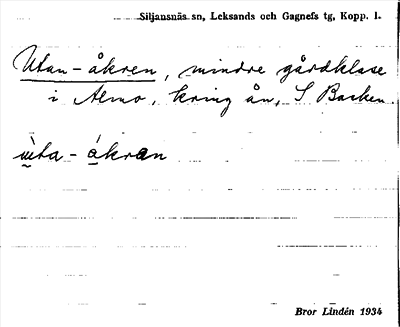 Siljansnäs sn, Leksands och Gagnefs tg, Kopp. l.
Utan-åkren, mindre gårdklase
i Almo, kring ån, S Backen.
ùta-ákran
Bror Lindén 1934